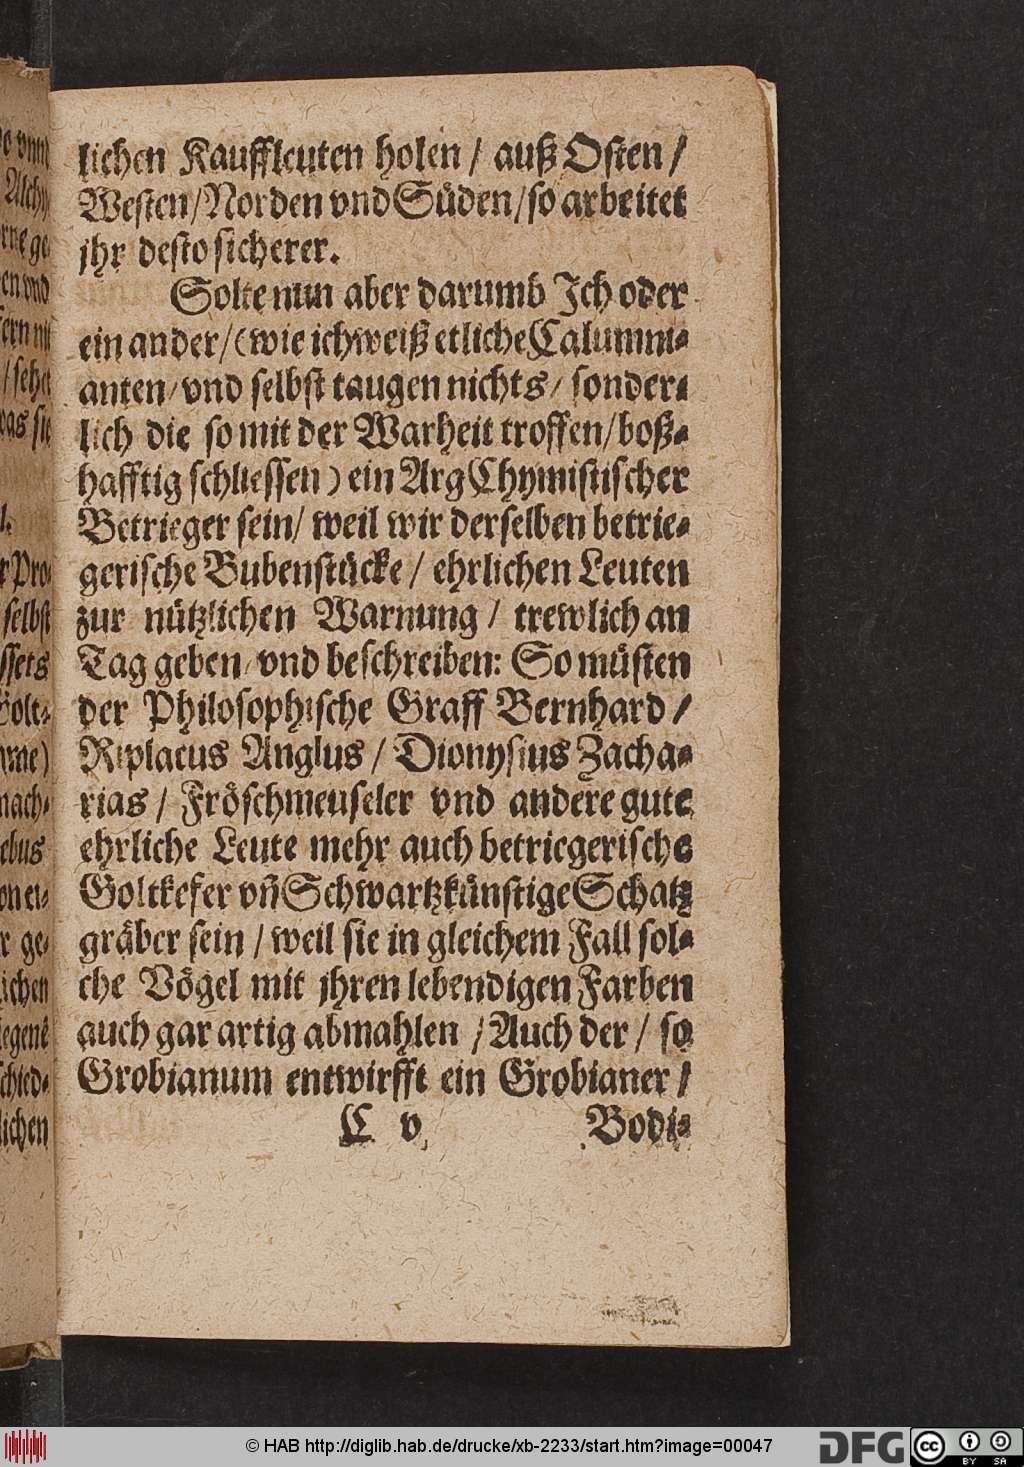 lichen Kauffleuten holen / auß Osten /
Westen / Norden vnd Süden / so arbeitet
jhr desto sicherer.
Solte nun aber darumb Ich oder
ein ander / (wie ich weiß etliche Calumni-
anten / vnd selbst taugen nichts / sonder-
lich die so mit der Warheit troffen / boß-
hafftig schliessen) ein ArgChymistischer
Betrieger sein / weil wir derselben betrie-
gerische Bubenstücke / ehrlichen Leuten
zur nützlichen Warnung / trewlich an
Tag geben / vnd beschreiben: So müsten
der Philosophische Graff Bernhard /
Riplaeus Anglus / Dionysius Zacha-
rias / Fröschmeuseler vnd andere gute
ehrliche Leute mehr auch betriegerische
Goltkefer vñ Schwartzkünstige Schatz
gräber sein / weil sie in gleichem Fall sol-
che Vögel mit jhren lebendigen Farben
auch gar artig abmahlen / Auch der / so
Grobianum entwirfft ein Grobianer /
C v Bodi-
Alchy
ge
en vnd
/ sehet
was sie
Pro-
selbst
ssets
Golt-
mach-
ge-
lichen
schied-
lichen
© HAB http://diglib.hab.de/drucke/xb-2233/start.htm?image=00047
DFG
cc BY SA